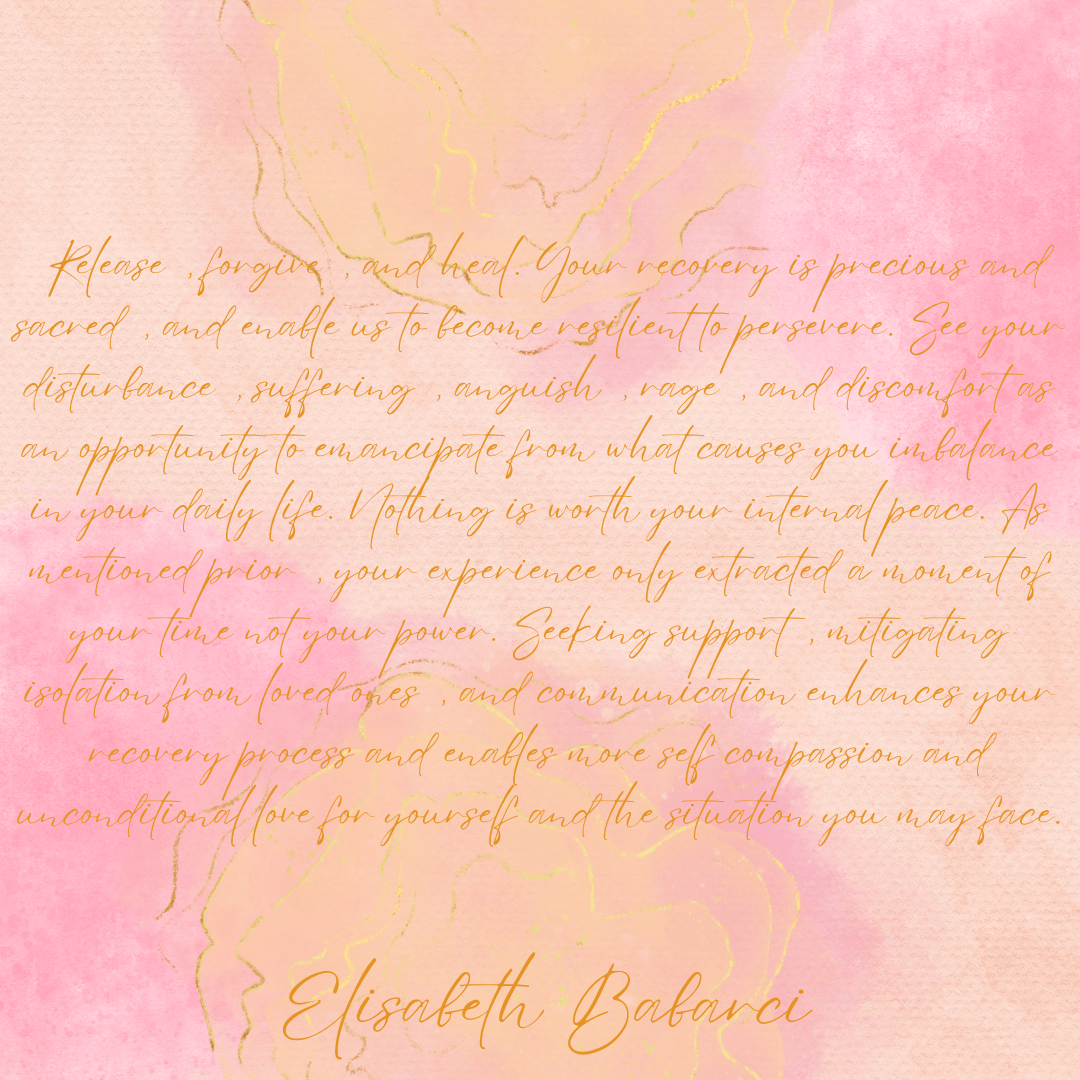 Release , forgive , and heal. Your recovery is precious and
sacred , and enable us to become resilient to persevere. See your
disturbance , suffering , anguish , rage , and discomfort as
an opportunity to emancipate from what causes you imbalance
in your daily life. Nothing is worth your internal peace. As
mentioned prior , your experience only extracted a moment of
your time not your power. Seeking support , mitigating
isolation from loved ones , and communication enhances your
recovery process and enables more self compassion and
unconditional love for yourself and the situation you may face.
Elisabeth Babarci